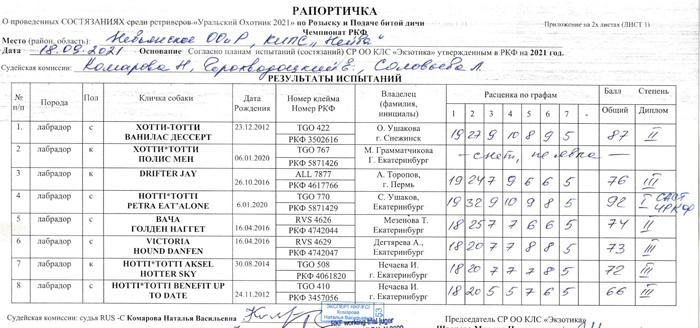 РАПОРТИЧКА
О проведенных СОСТЯЗАНИЯХ среди ретриверов «Уральский Охотник 2021» по Розыску и Подаче битой дичи
Приложение на 2х листах (ЛИСТ 1)
Чемпионат РКФ
Место (район, область): Невьянское ООиР, КИПС „Нейва“
Дата 18.09.2021 Основание Согласно планам испытаний (состязаний) СР ОО КЛС «Экзотика» утвержденным в РКФ на 2021 год.
Судейская комиссии: Комарова Н, Сороководоцкий Е, Соловьева Л.
РЕЗУЛЬТАТЫ ИСПЫТАНИЙ
№ п/п Порода Пол Кличка собаки Дата Рождения Номер клейма Номер РКФ Владелец (фамилия, инициалы) Расценка по графам Балл Степень
1 2 3 4 5 6 7 - Общий Диплом
1. лабрадор с ХОТТИ-ТОТТИ ВАНИЛАС ДЕССЕРТ 23.12.2012 TGO 422 РКФ 3502616 О. Ушакова г. Снежинск 19 27 9 10 8 9 5 87 II
2 лабрадор к ХОТТИ*ТОТТИ ПОЛИС МЕН 06.01.2020 TGO 767 РКФ 5871426 М. Грамматчикова Г. Екатеринбург
3 лабрадор к DRIFTER JAY 26.10.2016 ALL 7877 РКФ 4617766 А. Торопов, г. Пермь 19 24 7 9 6 6 5 76 III
4 лабрадор с HOTTI*TOTTI PETRA EAT'ALONE 6.01.2020 TGO 770 РКФ 5871429 С. Ушаков, Екатеринбург 19 32 9 10 9 8 5 92 I САСТ ЧРКФ
5 лабрадор с ВАЧА ГОЛДЕН НАГГЕТ 16.04.2016 RVS 4626 РКФ 4742044 Мезенова Т. Екатеринбург 18 25 7 7 6 6 5 74 II
6 лабрадор с VICTORIA HOUND DANFEN 16.04.2016 RVS 4629 РКФ 4742047 Дегтярева А., Екатеринбург 18 20 7 7 8 8 5 73 III
7 лабрадор к HOTTI*TOTTI AKSEL HOTTER SKY 30.08.2014 TGO 508 РКФ 4061820 Нечаева И. г. Екатеринбург 18 20 7 7 7 8 5 72 III
8 лабрадор с HOTTI*TOTTI BENEFIT UP TO DATE 24.11.2012 TGO 410 РКФ 3457056 Нечаева И. г. Екатеринбург 18 20 5 5 7 6 5 66 III
Судейская комиссии: судья RUS -С Комарова Наталья Васильевна
ЭКСПЕРТ РКФ/FCI
Комарова
Наталья Васильевна
Председатель СР ОО КЛС «Экзотика»